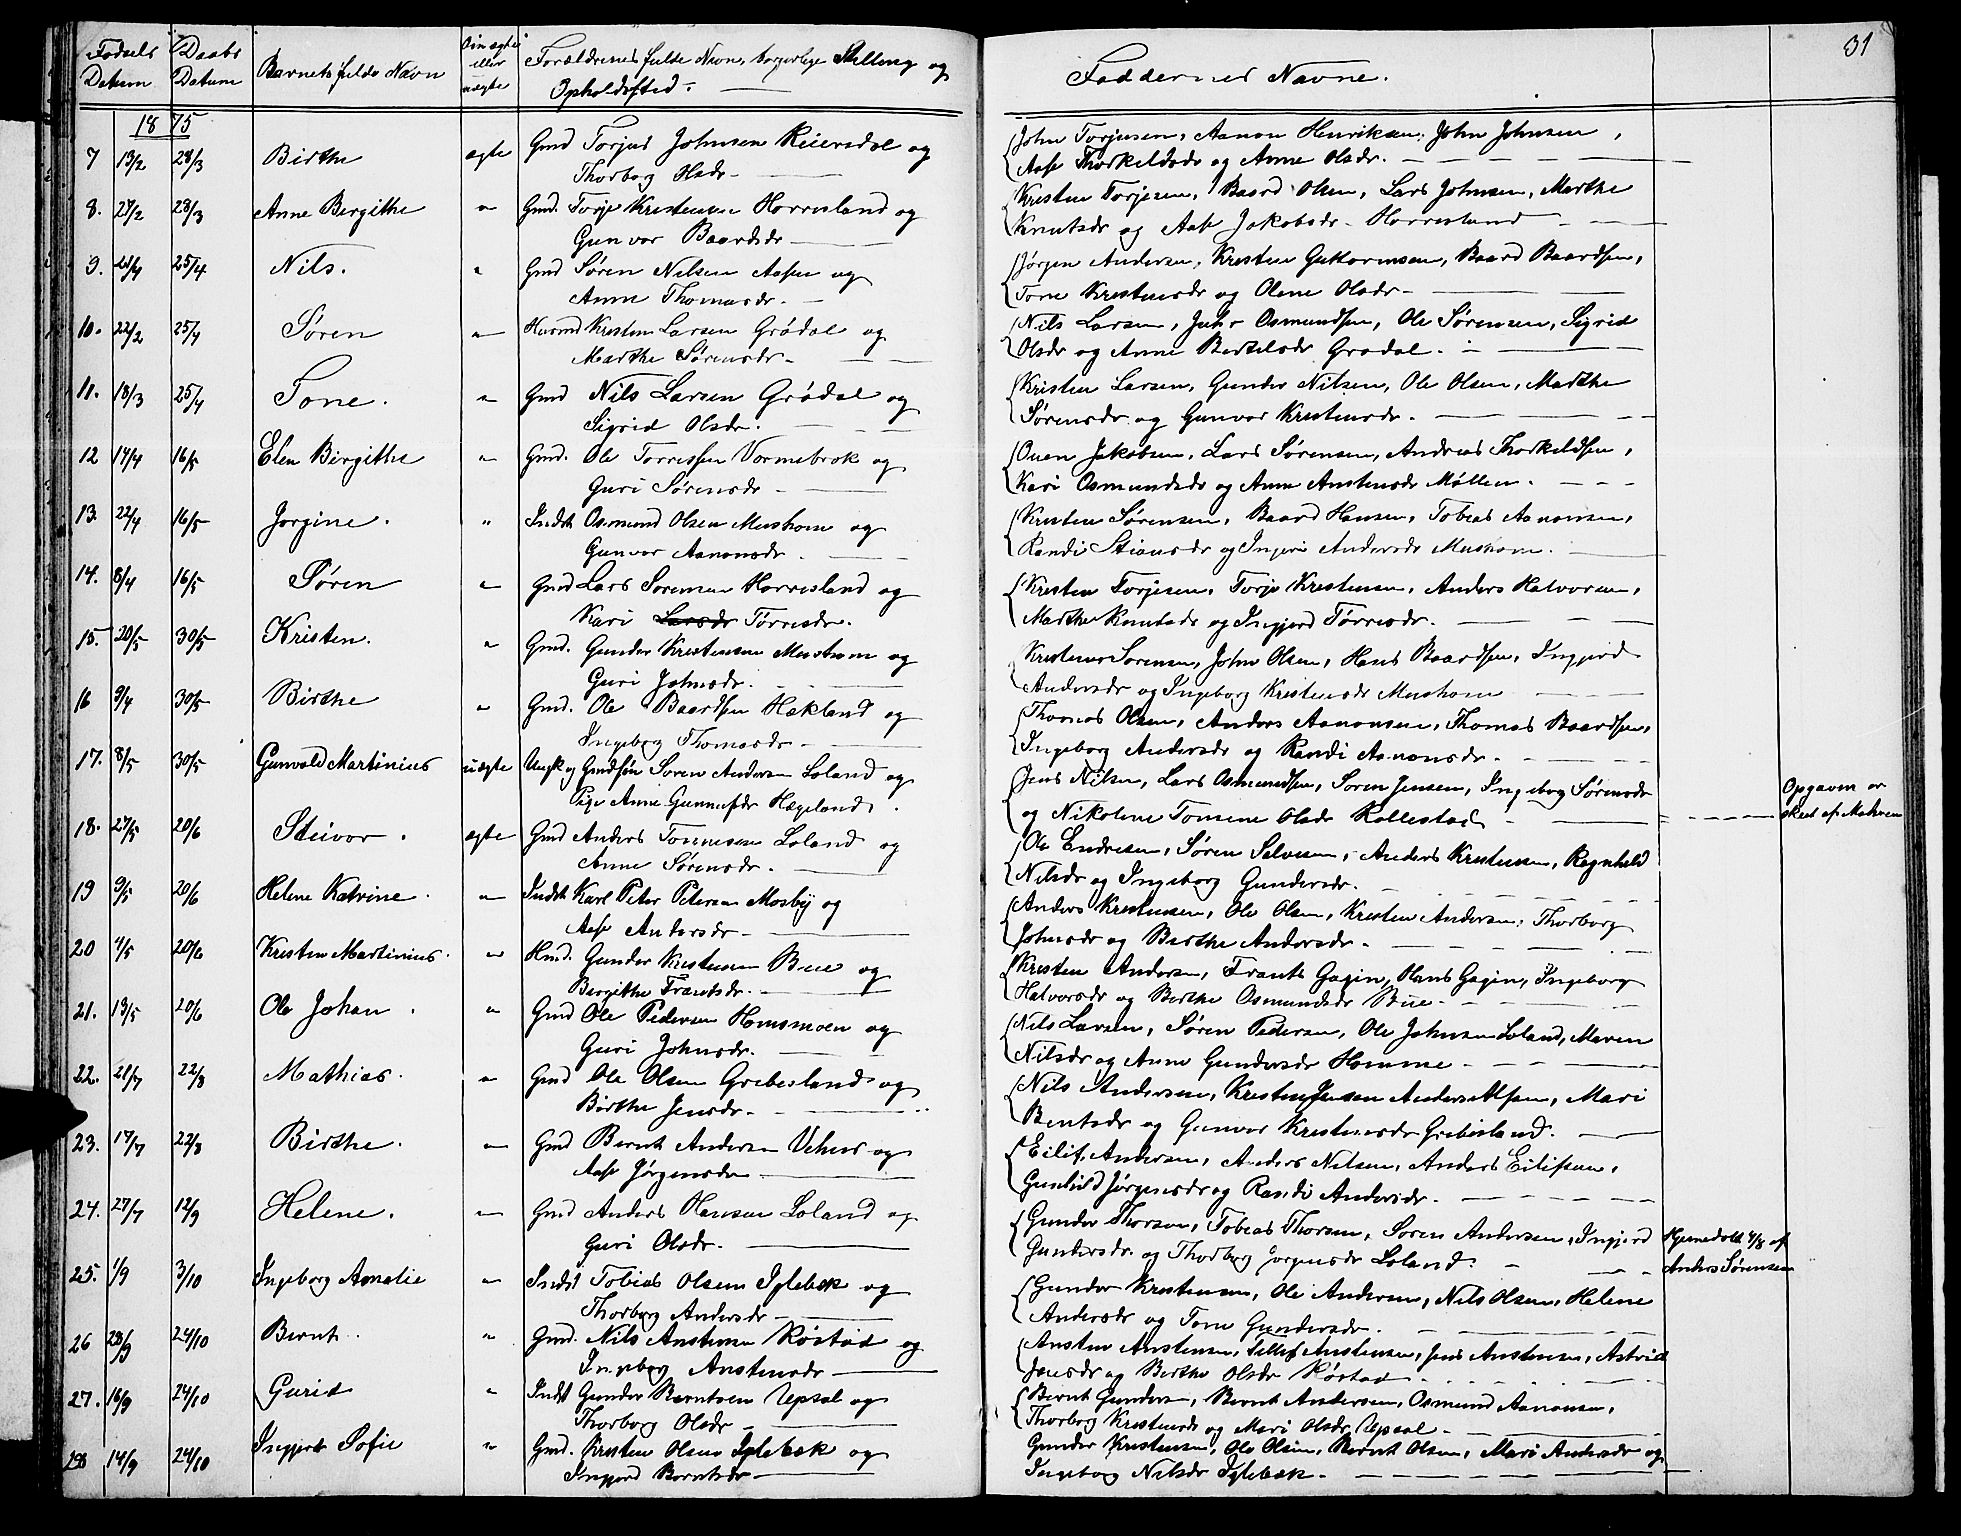 31
Fødsels Datum
Daabs Datum
Barnets fulde Navn
Om ægte eller uægte
Forældrenes fulde Navn, borgerlige Stilling og Opholdssted.
Faddernes Navne.
1875
7 13/2 28/3 Birthe ægte Gmd Torjus Johnsen Reiersdal og
Thorborg Olsdr.
John Torjusen, Aanon Henriksen, John Johnsen,
Aase Thorkeldsdr og Anne Olsdr.
8. 27/2 28/3 Anne Birgithe " Gmd. Torje Kristensen Horrisland og
Gunvor Baardsdr
Kristen Torjesen, Baard Olsen, Lars Johnsen, Marthe
Knutsdr og Aase Jakobsdr Horrisland
9. 25/4 Nils. " Gmd Søren Nilsen Aasen og
Anne Thomasdr.
Jørgen Andersen, Kristen Guttormsen, Baard Baardsen,
Tone Kristensdr og Olene Olsdr
10. 22/2 25/4 Søren " Kristen Larsen Grødal og
Marthe Sørensdr.
Nils Larsen, Osmundsen, Ole Sørensen, Sigrid
Olsdr og Anne Bertelsdr Grødal.
11. 18/3 25/4 Tone. " Gmd Nils Larsen Grødal og
Sigrid Olsdr.
Kristen Larsen, Gunder Nilsen, Ole Olsen, Marthe
Sørensdr og Gunvor Kristensdr.
12 17/4 16/5 Elen Birgithe " Gmd. Ole Torressen Vormebrok og
Guri Sørensdr
Ouen Jakobsen, Lars Sørensen, Andreas Thorkeldsen,
Kari Osmundsdr og Anne Anstensdr Møllen.
13. 22/4 16/5 Jorgine. " Indst Osmund Olsen Mushom og
Gunvor Aanonsdr.
Kristen Sørensen, Baard Hansen, Tobias Aanonsen,
Randi Stiansdr og Ingeri Andersdr Mushom.
14. 8/4 16/5 Søren " Gmd Lars Sorensen Horrisland og
Kari Larsdr Tørresdr.
Kristen Torjesen, Torje Kristensen, Anders Halvorsen,
Marthe Knutsdr og Ingjerd Tørresdr.
15. 20/5 30/5 Kristen. " Gmd. Gunder Kristensen Mushom og
Guri Johnsdr.
Kristen Sorensen, John Olsen, Hans Baardsen, Ingjerd
Andersdr og Ingeborg Kristensdr Mushom
16 9/4 30/5 Birthe " Gmd. Ole Baardsen Hekland og
Ingeborg Thomasdr
Thomas Olsen, Anders Aanonsen, Thomas Baardsen,
Ingeborg Andersdr og Randi Aanonsdr.
17. 8/5 30/5 Gunvald Martinius uægte Ungk og Gmdsøn Soren Andersen Loland og
Pige Anne Gunnufsdr Hægeland.
Jens Nilsen, Lars Osmundsen, Soren Jensen, Ingeborg Sørensdr
og Nikoline Tomine Olsdr Rollestad
Opgaven er
skeet af Moderen
18. 27/5 20/6 Steivor. ægte Gmd Anders Tonnesen Loland og
Anne Sørensdr.
Ole Endresen, Søren Salvesen, Anders Kristensen, Ragnhild
Nilsdr og Ingeborg Gundersdr.
19 9/5 20/6 Helene Katrine. " Indst Karl Peter Petersen Mosby og
Aase Andersdr
Anders Kristensen, Ole Olsen, Kristen Andersen, Thorborg
Johnsdr og Birthe Andersdr.
20 4/5 20/6 Kristen Martinius. " Hmd. Gunder Kristensen Bue og
Birgithe Frantsdr.
Kristen Andersen, Frants Gagin, Hans Gagin, Ingeborg
Halvorsdr og Birthe Osmundsdr Bue
21. 13/5 20/6 Ole Johan. " Gmd Ole Pedersen Homsmoen og
Guri Johnsdr.
Nils Larsen, Søren Pedersen, Ole Johnsen Loland, Maren
Nilsdr og Anne Gundersdr Homme
22. 21/7 22/8 Mathias. " Gmd Ole Olsen Grebesland og
Birthe Jensdr
Nils Andersen, Kristen Jensen, Anders Alfsen, Mari
Bentsdr og Gunvor Kristensdr Grebesland.
23. 17/7 22/8 Birthe. " Gmd Bernt Andersen Vehus og
Aase Jørgensdr
Eilif Andersen, Anders Nilsen, Anders Eilifsen,
Gunhild Jørgensdr og Randi Andersdr.
24. 27/7 12/9 Helene. " Gmd Anders Hansen Loland og
Guri Olsdr.
Gunder Thorsen, Tobias Thorsen, Soren Andersen, Ingjerd
Gundersdr og Thorborg Jorgensdr Loland.
Hjemedøbt 4/8 af
Anders Sørensen
25. 1/9 3/10 Ingeborg Amalie " Indst Tobias Olsen Iglebæk og
Thorborg Andersdr
Gunder Kristensen, Ole Andersen, Nils Olsen, Helene
Andersdr og Tone Gundersdr.
26 23/9 24/10 Bernt. " Gmd. Nils Anstensen Røstad og
Ingeborg Anstensdr
Ansten Anstensen, Tellef Anstensen, Jens Anstensen, Astrid
Jensdr og Birthe Olsdr Røstad
27. 16/9 24/10 Gurid " Indst Gunder Berntsen Upsal og
Thorborg Olsdr
Bernt Gundersen, Bernt Andersen, Osmund Aanonsen,
Thorborg Kristensdr og Mari Olsdr Upsal
28 14/9 24/10 Ingjerd Sofie " Gmd. Kristen Olsen Iglebæk og
Ingjerd Berntsdr
Gunder Kristensen, Ole Olsen, Bernt Olsen, Mari Andersdr og
Ingeborg Nilsdr Iglebæk.